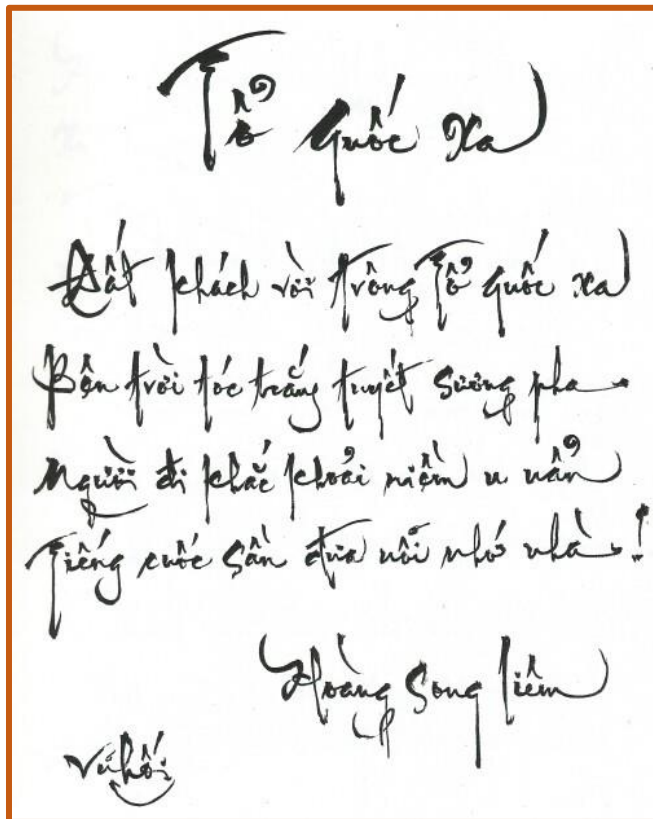 Tổ Quốc Xa
Đất khách vời trông Tổ quốc xa
Bên trời tóc trắng tuyết sương pha
Người đi khắc khoải niềm u uẩn
Tiếng cuốc sần đưa nỗi nhớ nhà !
Hoàng Song Liêm
Vũ Hối